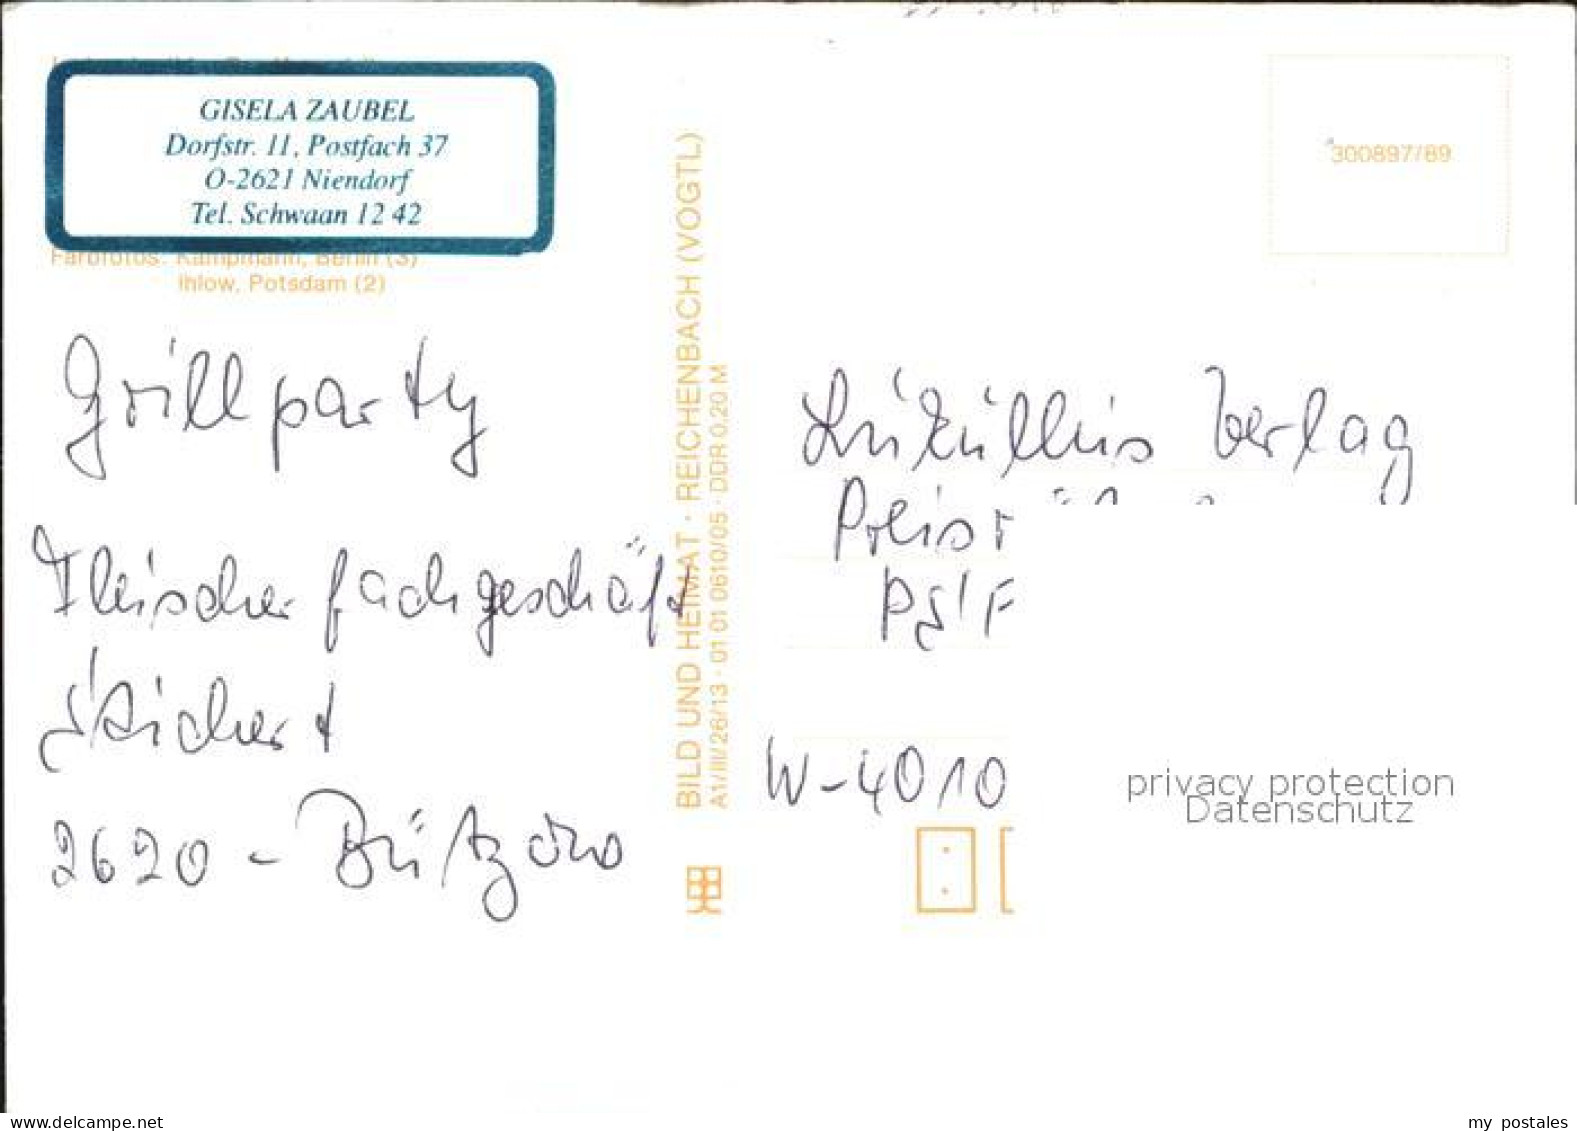 GISELA ZAUBEL
Dorfstr. 11, Postfach 37
O-2621 Niendorf
Tel. Schwaan 12 42
Farbfotos: Kampmann, Berlin (3)
Ihlow, Potsdam (2)
Grillparty
Fleischerfachgeschäft
2620 - Bützow
BILD UND HEIMAT · REICHENBACH (VOGTL)
A1/III/26/13 · 01 01 0610/05 · DDR 0,20 M
300897/89
Lukullus Verlag
W-4010
privacy protection
Datenschutz
www.delcampe.net
my postales